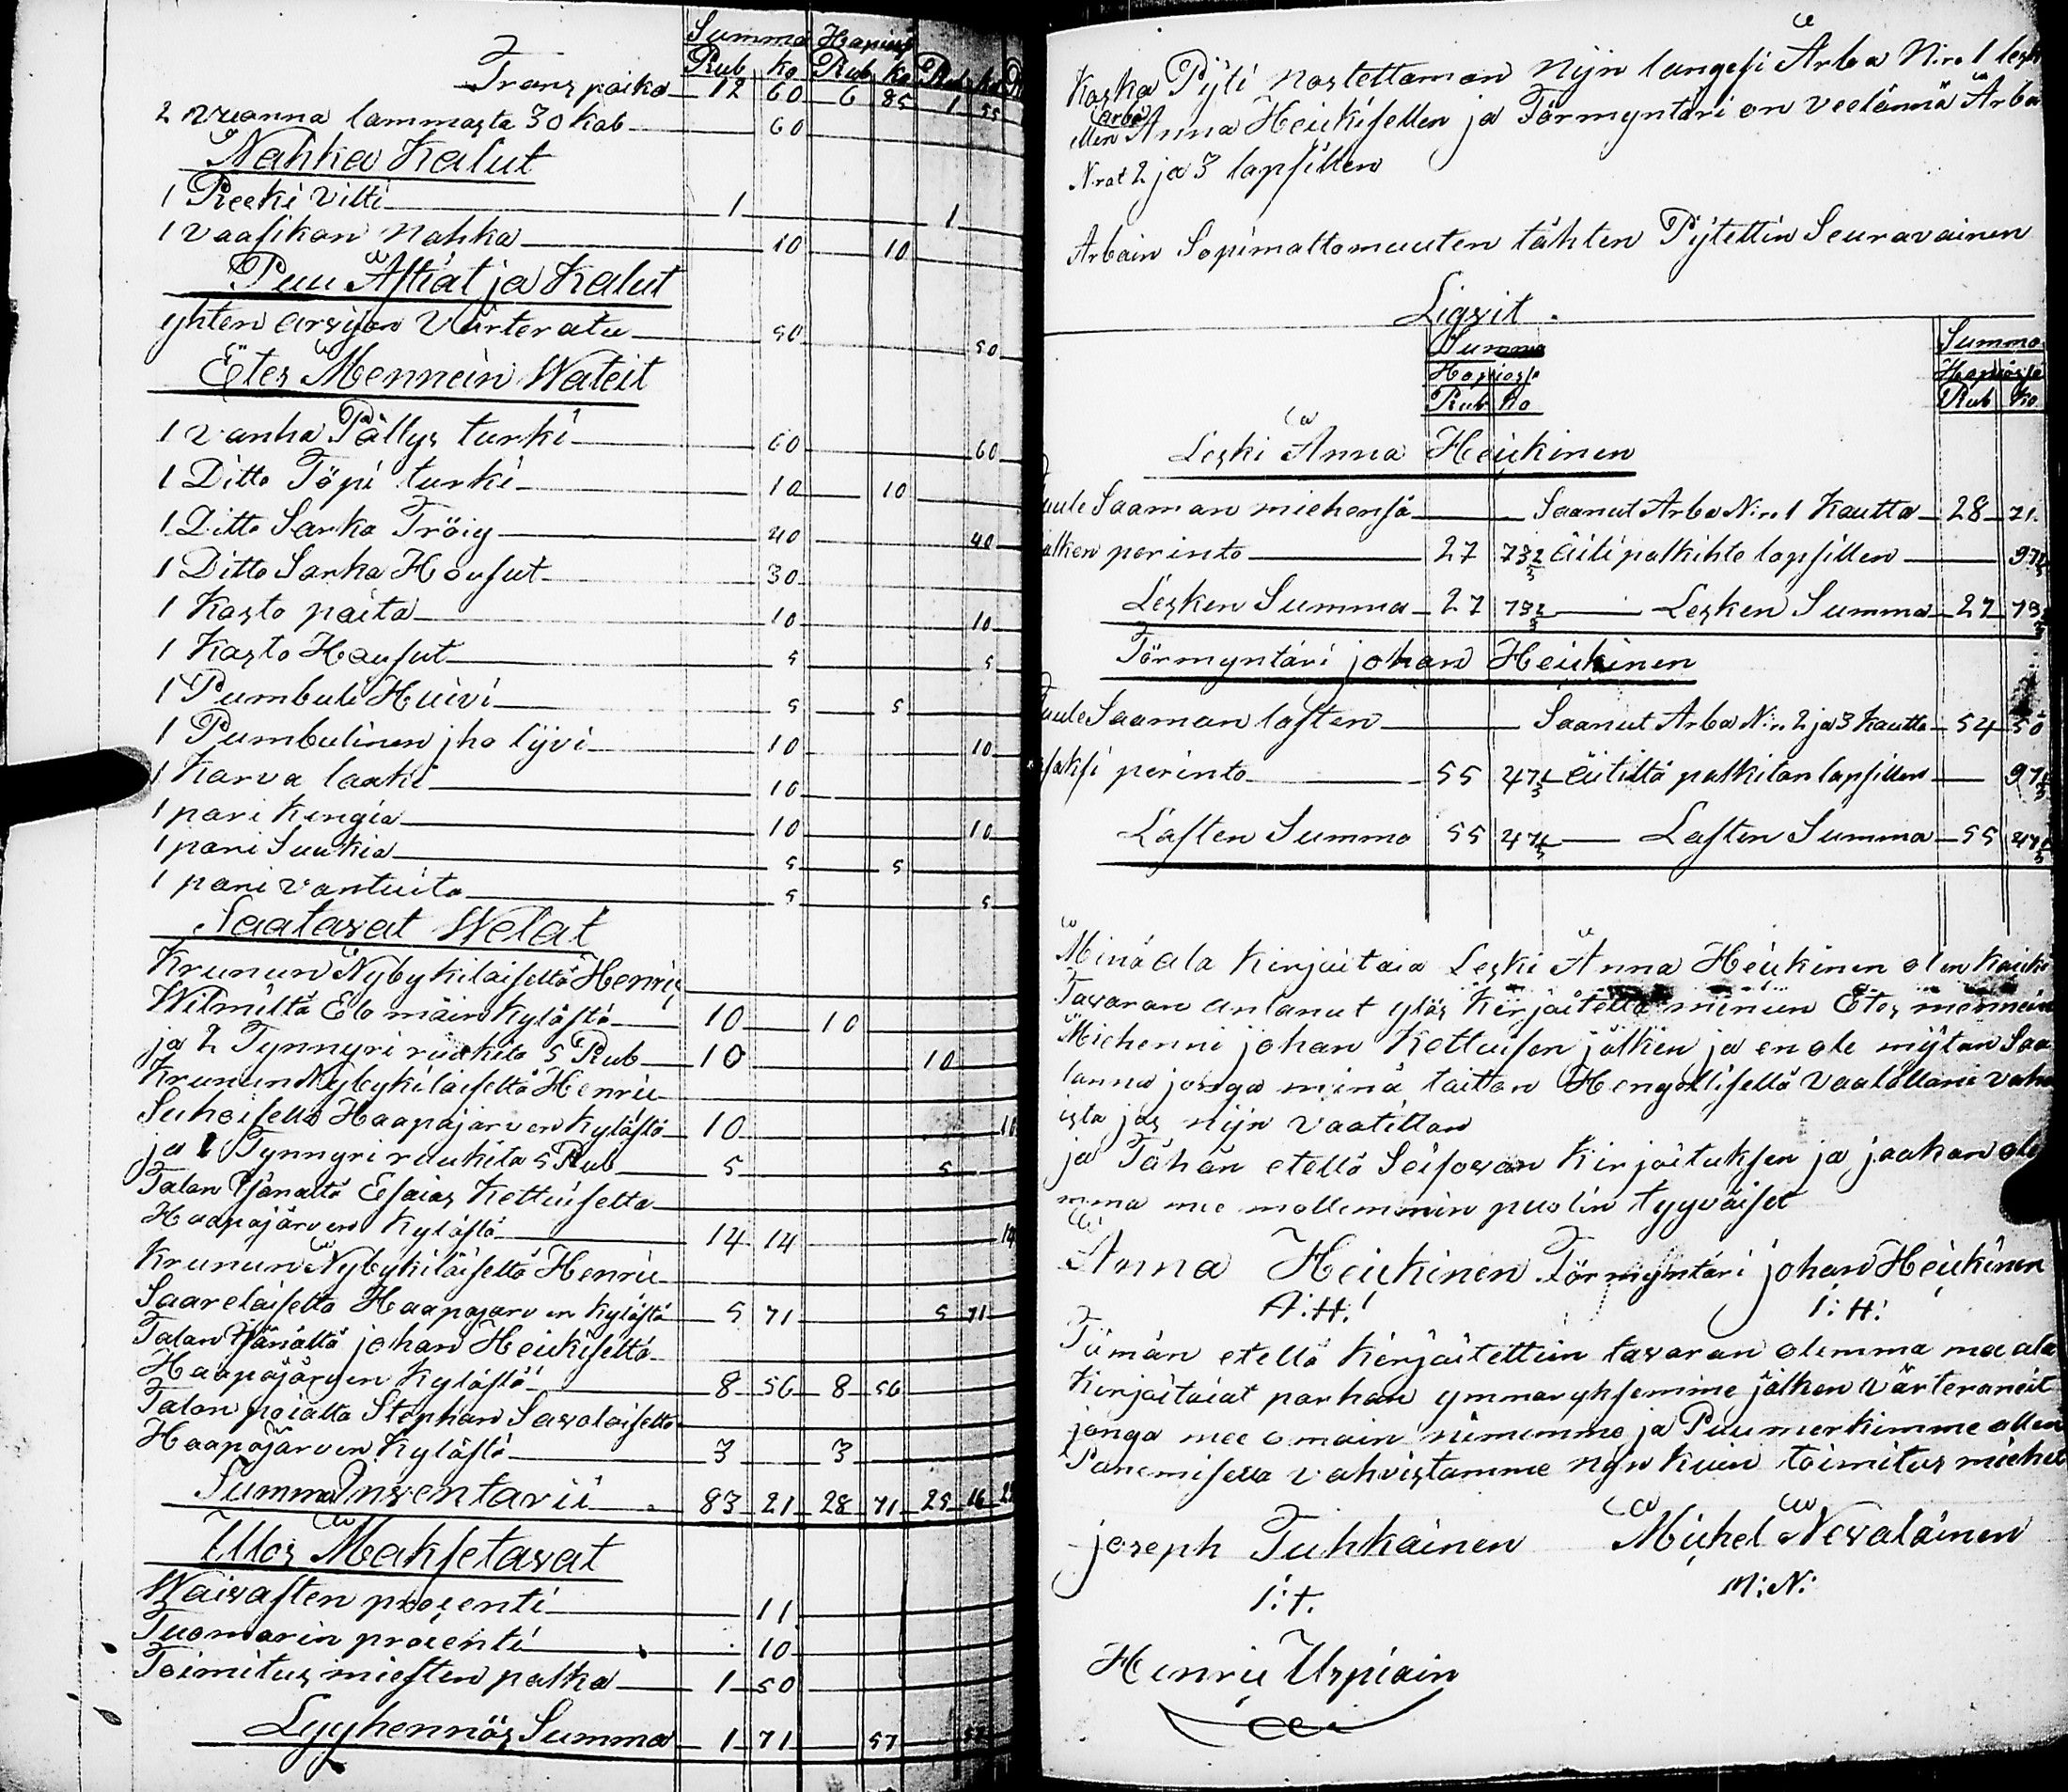 Summa Hopias
Rub ko Rub ko Rub ko
Trans poika 12 60 6 85 1 55
2 vuonna lammasta 30 Kob 60
Nahka Kalut
1 Reeki Vilti 1 1
1 vaasikan Nahka 10 10
Puu Astiat ja Kalut
yhten arvijon Värteratu 50 50
Etes Mennein Wateit
1 vanha Pällys turki 60 60
1 Ditto Töpi turki 10 10
1 Ditto Sarka Tröig 40 40
1 Ditto Sarka Housut 30
1 Kasto paita 10 10
1 Kasto Housut 5 5
1 Pumbuli Huivi 5 5
1 Pumbulinen jho lijvi 10 10
1 Karva laaki 10
1 pari Kengia 10 10
1 pari Suukia 5 5
1 pari vantuita 5 5
Saatavat Welat
Krunun Nybykiläiseltä Henric
Wilmiltä Elo mäin Kylästä 10 10
ja 2 Tynnyri ruukita 5 Rub 10 10
Krunun Nybykiläiseltä Henric
Suhoisella Haapajärven Kylästä 10 10
ja 1 Tynnyri ruukita 5 Rub 5 5
Talon Isänältä Esaias Kettuiselta
Haapajärven Kylästä 14 14 14
Krunun Nybykiläiseltä Henric
Saarelaiselta Haapajarven Kylästä 5 71 5 71
Talon Isänältä johan Heickiseltä
Haapajärven Kylästä 8 56 8 56
Talon poialta Stephan Savolaiselta
Haapajärven Kylästä 3 3
Summa Inventarii 83 21 28 71 25 16
Ulos Maksetavat
Waivasten prosenti 11
Tuomarin prosenti 10
Toimitus miesten palka 1 50
Lyyhennös Summa 1 71 57
Koska Pyti nostettaman Nijn langesi Arba N:ro 1 lesk
Arba
ellen Anna Heickisellen ja Förmyntäri on veetännä Arba
N:rat 2 ja 3 lapsillen
Arbain Sopimattomuuten tähten Pijtettin Seuravainen
Liqvit.
Summa Summa
Hopiossa Hopiossa
Rub ko Rub ko
Leski Anna Heickinen
Tuule Saaman miehensä Saanut Arba N:ro 1 Kautta 28 71
jälken perinto 27 73 2/3 äiti palkihte lapsillen 97 1/3
Lesken Summa 27 73 2/3 Lesken Summa 27 73 2/3
Förmyntäri johan Heickinen
Tuule Saaman lasten Saanut Arba N:ro 2 ja 3 Kautta 54 50
osaksi perinto 55 47 1/3 äitiltä palkitan lapsillen 97 1/3
Lasten Summa 55 47 1/3 Lasten Summa 55 47 1/3
Minä ala Kirjoitaia Leski Anna Heickinen olen Kaicki
Tavaran antanut ylös Kirjoitella minun Etes mennein
Miehenni johan Kettuisen jälkien ja en ole mijtan Saa
lanna jonga minä taittan Hengellisellä Vaalallani vahv
ista jos nijn vaatittan
ja Tähän etellä Seisovan Kirjoituksen ja jaakan ole
mma mee mollemmin puolin tyyväiset
Anna Heickinen Förmyntäri johan Heickinen
A:H: I:H:
Tämän etellä Kirjoitettuin tavaran olemma me ala
Kirjoitaiat parhan ymmaryksemme jälken värteraneit
jonga mee omain nimemme ja Puumerkimme allen
Panemisella vahvistamme nijn kuin toimitus miehet
joseph Tuhkainen Michel Nevalainen
I:T. M:N:
Henric Uspiain